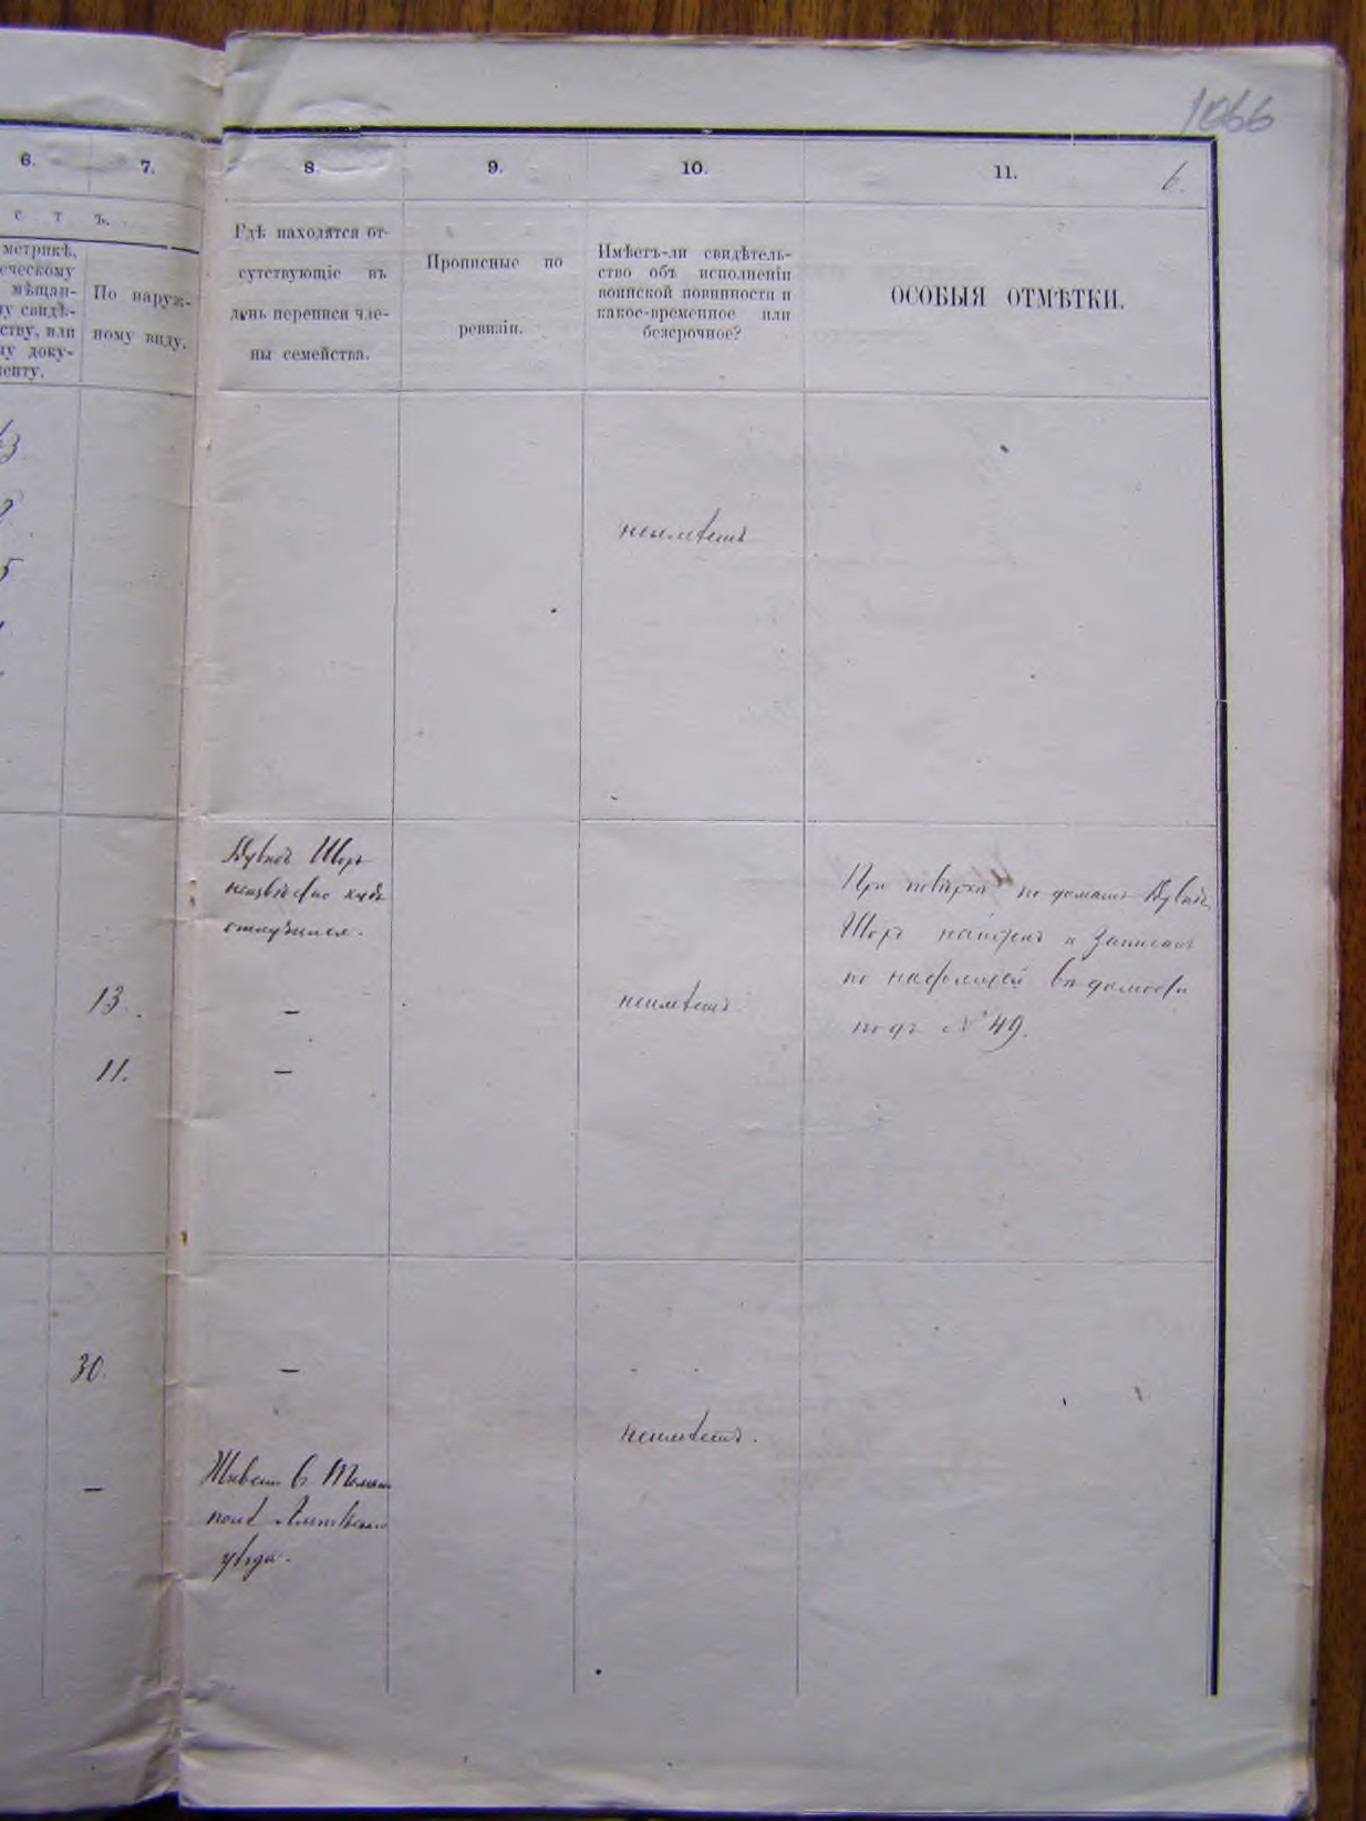 1066
6. 7. 8 9. 10. 11. 6.
с т ъ.
метрикѣ,
ческому
мѣщан-
у свидѣ-
ству, или
у доку-
енту.
По наруж-
ному виду.
Гдѣ находятся от-
сутствующіе въ
день переписи чле-
ны семейства.
Прописные по
ревизіи.
Имѣетъ-ли свидѣтель-
ство объ исполненіи
воинской повинности и
какое-временное или
безсрочное?
ОСОБЫЯ ОТМѢТКИ.
3
5
неимѣетъ
Дувидъ Шоръ
неизвѣстно куда
отлучился.
13. — неимѣетъ
11. —
При повѣрки по домамъ Дувидъ
Шоръ найденъ и Записанъ
по настоящей вѣдомости
подъ № 49.
30. —
неимѣетъ.
— Живетъ в
уѣзда.